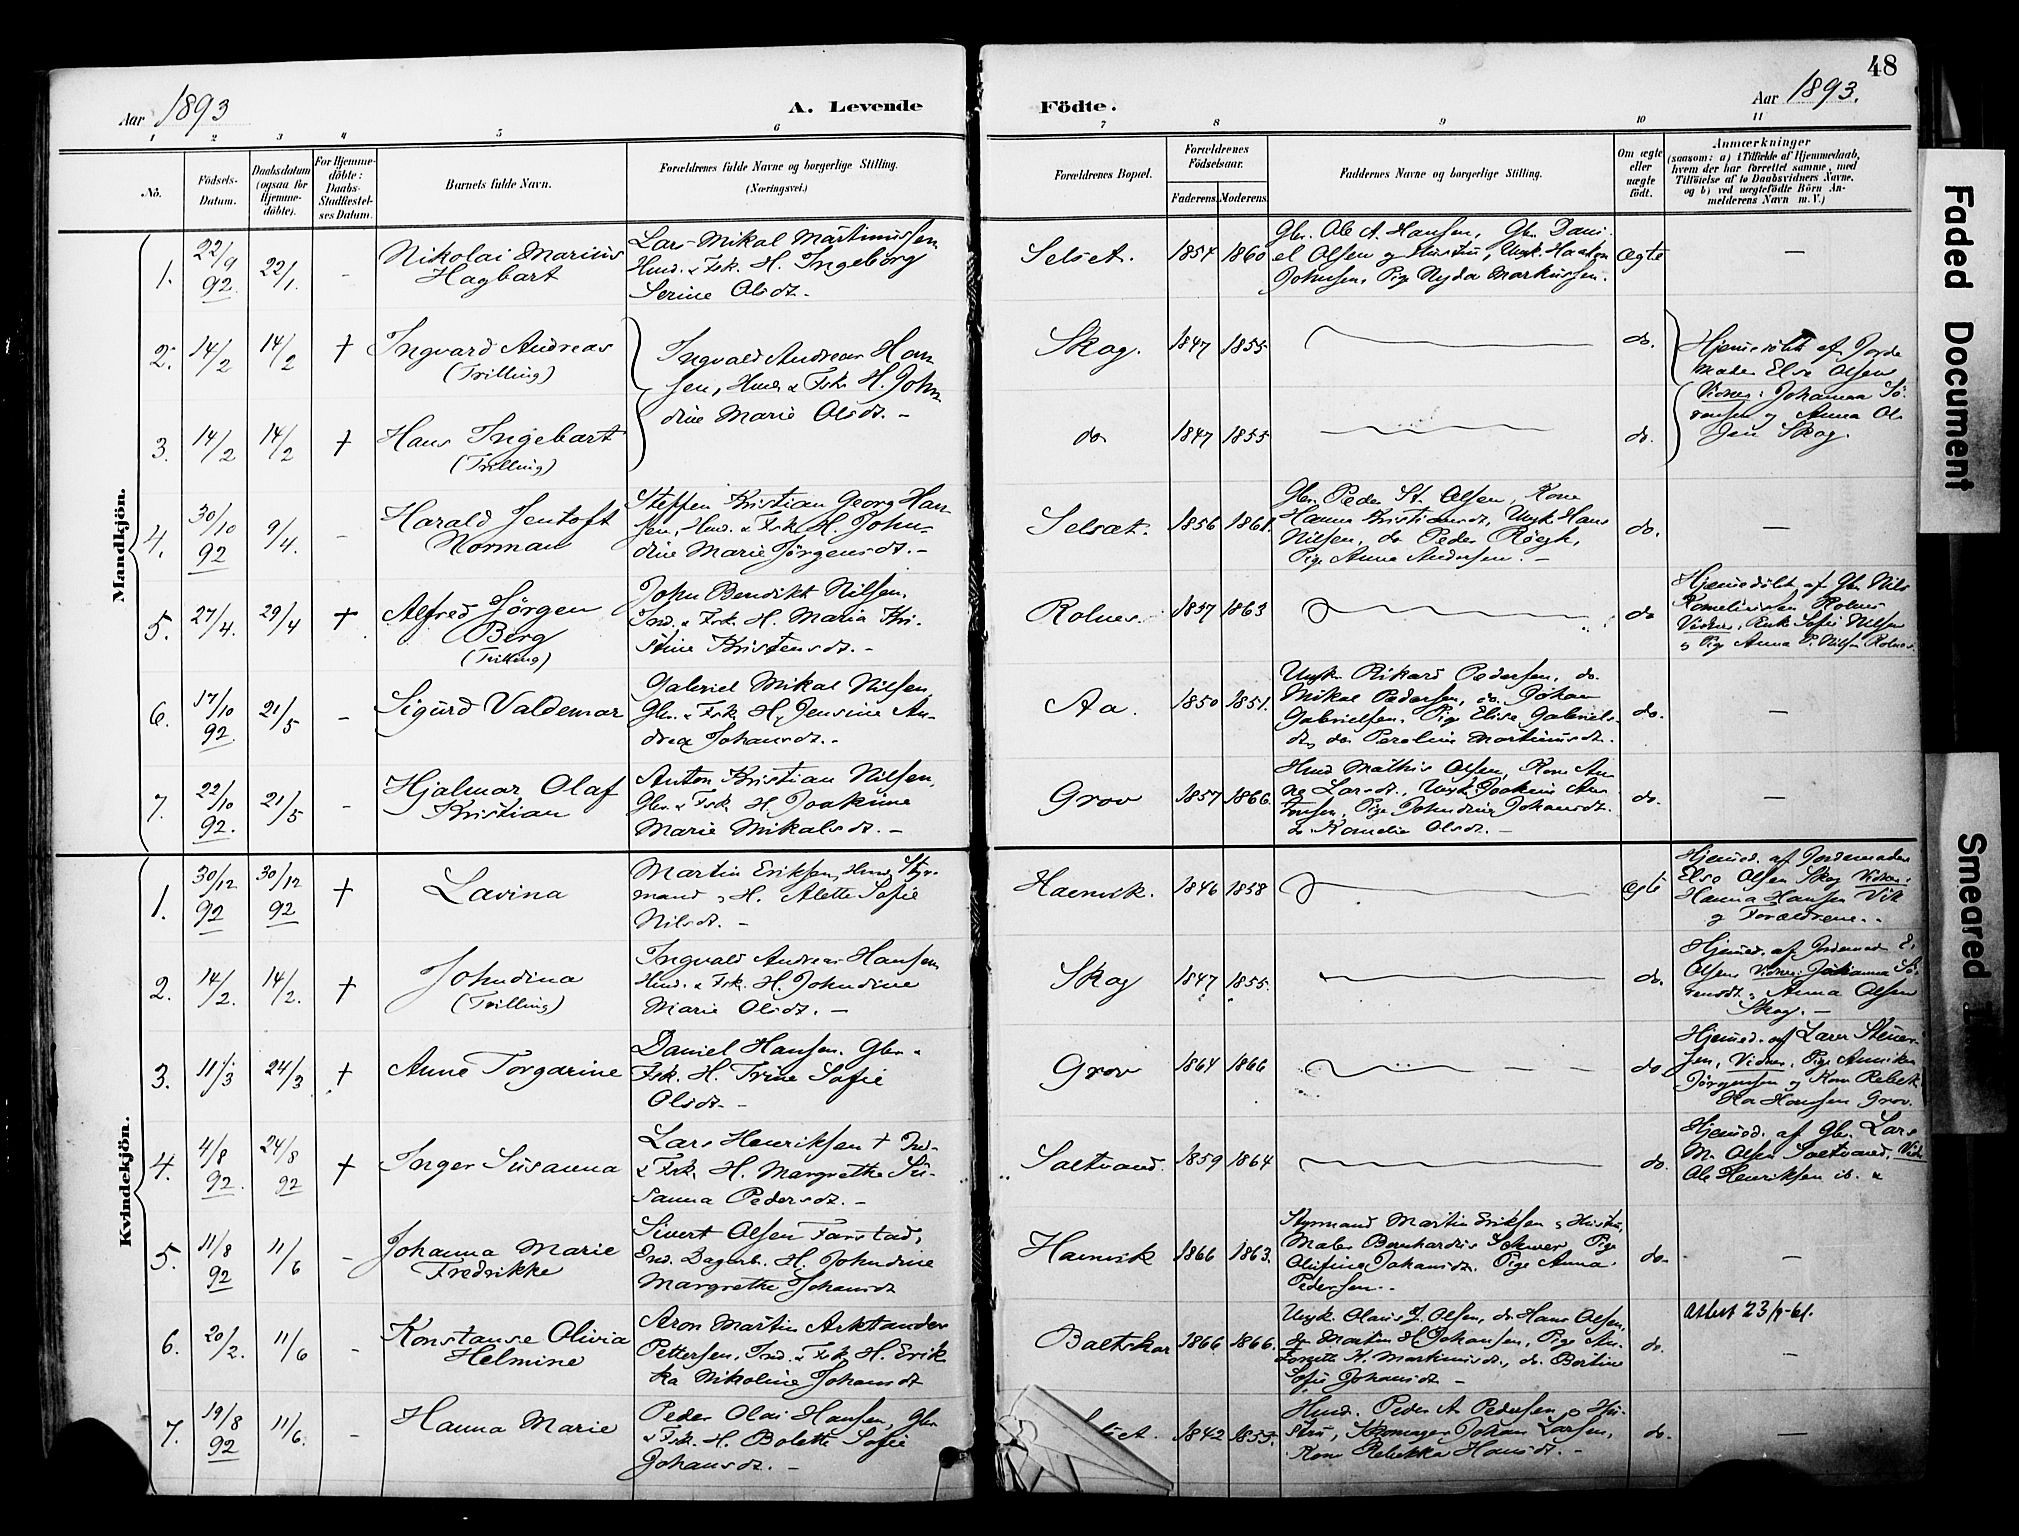 48
Aar 1893
A. Levende
Födte.
Aar 1893.
1 2 3 4 5 6 7 8 9 10 11
No.
Födsels-
Datum.
Daabsdatum
(ogsaa för
Hjemme-
döbte).
For Hjemme-
döbte:
Daabs-
Stadfæstel-
ses Datum.
Barnets fulde Navn.
Forældrenes fulde Navne og borgerlige Stilling.
(Næringsvei.)
Forældrenes Bopæl.
Forældrenes
Födselsaar.
Faderens. Moderens.
Faddernes Navne og borgerlige Stilling.
Om ægte
eller
uægte
födt.
Anmærkninger
(saasom: a) i Tilfælde af Hjemmedaab,
hvem der har forrettet samme, med
Tilföielse af to Daabsvidners Navne,
og b) ved uægtefödte Börn An-
melderens Navn m. V.)
Mandkjön.
1. 22/9 92 22/1. - Nikolai Marius
Hagbart
Lars Mikal Martinussen
Hmd. & Fsk. H. Ingeborg
Serine Olsdt. -
Selset. 1854 1860
Gbr. Ole A. Hansen, Gbr. Dani-
el Olsen og Hustru, Ungk. Haakon
Johnsen, Pige Nyda Markussen.
ægte —
2. 14/2 14/2 + Ingvard Andreas
(Trilling)
Ingvald Andreas Han
sen, Hmd. & Fsk. H. John
dine Marie Olsdt. -
Skog. 1847 1855 do.
Hjemmedöbt af Jorde
moder Else Olsen
Vidner: Johanna Sö-
rensen og Anna Ol
sen Skog.
3. 14/2 14/2 + Hans Ingebart
(Trilling)
do 1847 1855 do.
4. 30/10 92 9/4. - Harald Jentoft
Norman
Steffen Kristian Georg Han
sen, Hmd. & Fsk. H. John-
dine Marie Jörgensdt. -
Selsæt. 1856 1861.
Gbr. Peder St. Olsen, Kone
Hanna Kristiansdt, Ungk Hans
Nilsen, do Peder Röegh,
Pige Anna Andersen. -
do. —
5. 27/4. 29/4 + Alfred Jörgen
Berg
(Trilling)
John Benedikt Nilsen,
Ind. & Fsk. H. Maria Kri-
stine Kristensdt. -
Rolnes. 1857 1863 do
Hjemmedöbt af Gbr Nils
Korneliussen Rolnes
Vidner, Enke Sofie Nilsen
& Pige Anna P. Nilsen Rolnes.
6. 17/10 92. 21/5 - Sigurd Valdemar
Gabriel Mikal Nilsen,
Gbr. & Fsk. H. Jensine An-
drea Johansdt. -
Aa. 1850 1851.
Ungk. Rikard Pedersen, do.
Mikal Pedersen, do. Johan
Gabrielsen. Pige Elise Gabriels-
dt, do Peroline Martinusdt.
do. —
7. 22/10 92. 21/5 - Hjalmar Olaf
Kristian
Anton Kristian Nilsen,
Gbr. & Fsk. H. Joakime
Marie Mikalsdt. -
Grov 1857 1866.
Hmd Mathis Olsen, Kone An-
ne Larsdt., Ungk Joakim An
tonsen, Pige Johndine Johansdt.
do Kornelie Olsdt. -
do. —
Kvindekjön.
1. 30/12 92 30/12 92 + Lavina
Martin Eriksen, Hmd. Styr-
mand & H. Alette Sofie
Nilsdt. -
Hamvik. 1846 1858 ægte
Hjemmed. af Jordemoder
Else Olsen Skog Vidner:
Hanna Hansen Vik
og Forældrene. -
2. 14/2. 14/2. + Johndina
(Trilling)
Ingvald Andreas Hansen
Hmd. & Fsk. H. Johndine
Marie Olsdt. -
Skog 1847 1855. do.
Hjemmed. af Jordemod E.
Olsen Vidner: Johanna Sö-
rensdt & Anna Olsen
Skog. -
3. 11/3 24/3 + Anne Torgarine
Daniel Hansen. Gbr. &
Fsk. H. Trine Sofie
Olsdt. -
Grov 1864 1866 do
Hjemmed. af Lærer Stener-
sen, Vidner, Pige Anniken
Jörgensen og Kone Rebek
ka Hansen Grov.
4. 4/8 92. 24/8 92 + Inger Susanna
Lars Henriksen + Ind-
& Fsk. H. Margrethe Su-
sanna Pedersdt. -
Saltvand. 1859 1864 do.
Hjemmed. af Gbr. Lars
M. Olsen Saltvand, Vidn
Ole Henriksen ib.
5. 11/8 92 11/6 - Johanna Marie
Fredrikke
Sivert Olsen Farstad,
Ind. Dagarb. H. Johndine
Margrethe Johansdt
Hamvik 1866 1863.
Styrmand Martin Eriksen & Hustru,
Maler Bernhardus Pige
Olufine Johansdt. Pige Anna
Pedersen. -
do. —
6. 20/2. 11/6 - Konstanse Olivia
Helmine
Aron Martin Arktander
Pettersen, Ind. & Fsk. H. Erik
ka Nikoline Johansdt
Boltskar 1866 1866.
Ungk. Olaus J. Olsen, do Hans Olsen,
do Martin H. Johansen, Pige An-
K. Martinusdt., do. Bertine
Sofie Johansdt -
do.
Attest 23/9-61.
—
7. 19/8 92 11/6. - Hanna Marie
Peder Olai Hansen, Gbr
& Fsk. H. Bolette Sofie
Johansdt. -
1842 1855.
Hmd. Peder A. Pedersen & Hu-
stru, Skomager Johan Larsen,
Kone Rebekka Hansdt. -
do. —
Faded Document
Smeared